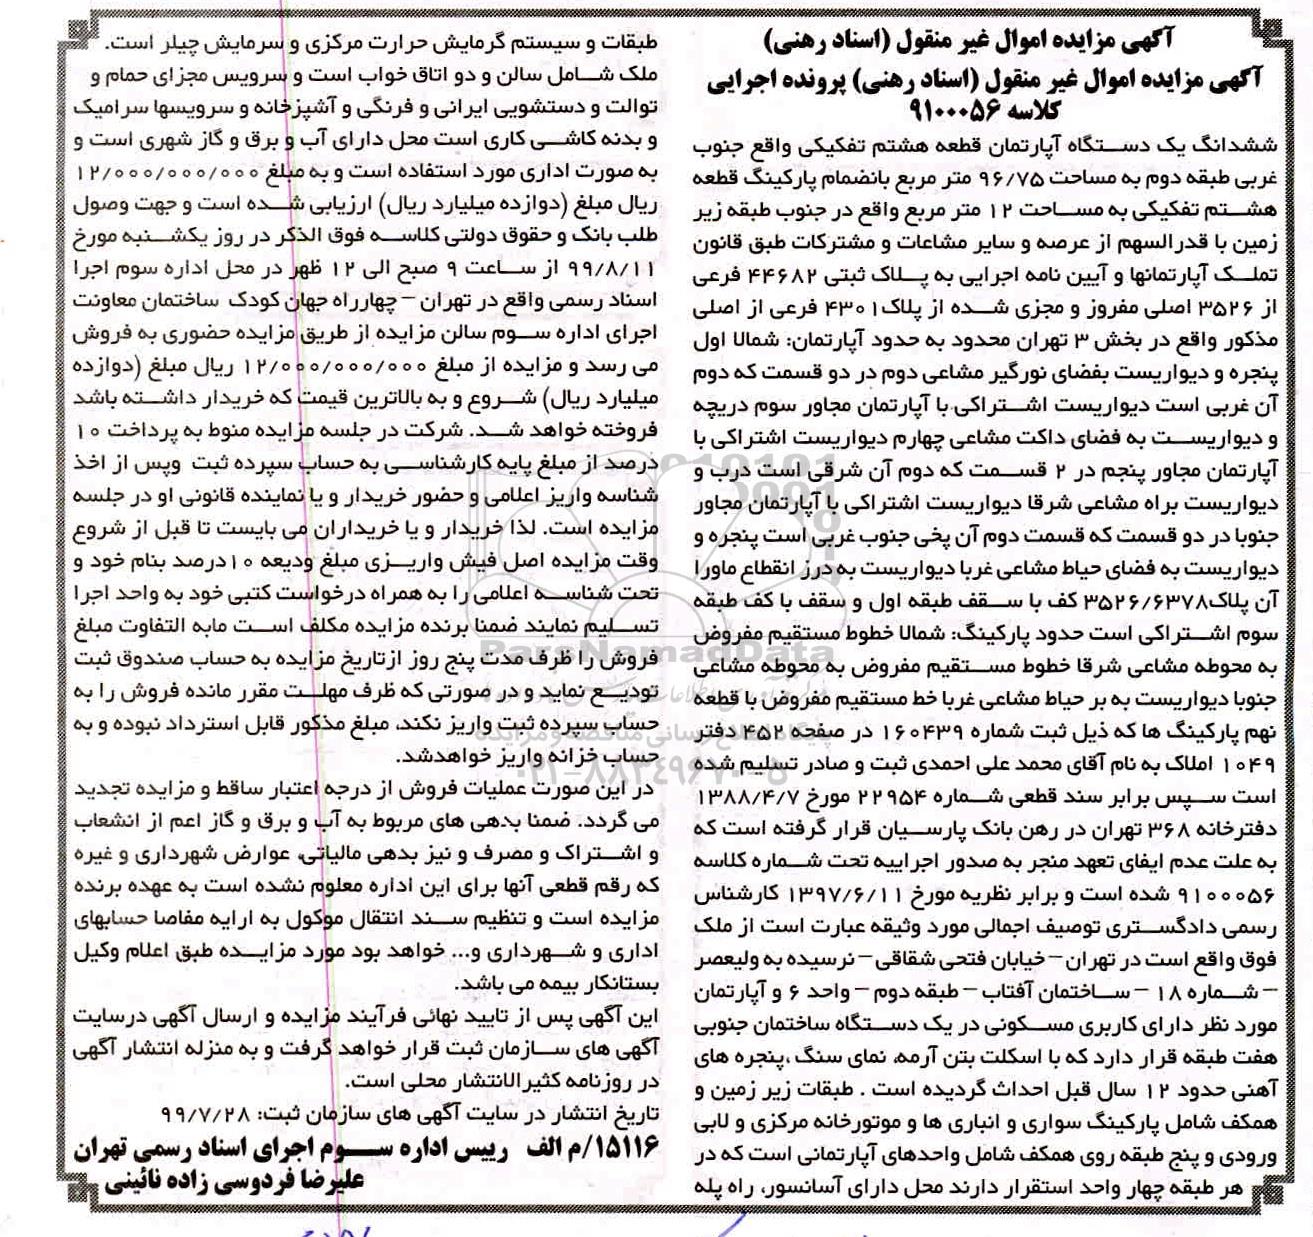 آگهی مزایده اموال غیر منقول (اسناد رهنی)
آگهی مزایده اموال غیر منقول (اسناد رهنی) پرونده اجرایی
کلاسه ۹۱۰۰۰۵۶
ششدانگ یک دستگاه آپارتمان قطعه هشتم تفکیکی واقع جنوب
غربی طبقه دوم به مساحت ۹۶/۷۵ متر مربع بانضمام پارکینگ قطعه
هشتم تفکیکی به مساحت ۱۲ متر مربع واقع در جنوب طبقه زیر
زمین با قدرالسهم از عرصه و سایر مشاعات و مشترکات طبق قانون
تملک آپارتمانها و آیین نامه اجرایی به پلاک ثبتی ۴۴۶۸۲ فرعی
از ۳۵۲۶ اصلی مفروز و مجزی شده از پلاک۴۳۰۱ فرعی از اصلی
مذکور واقع در بخش ۳ تهران محدود به حدود آپارتمان: شمالا اول
پنجره و دیواریست بفضای نورگیر مشاعی دوم در دو قسمت که دوم
آن غربی است دیواریست اشتراکی با آپارتمان مجاور سوم دریچه
و دیواریست به فضای داکت مشاعی چهارم دیواریست اشتراکی با
آپارتمان مجاور پنجم در ۲ قسمت که دوم آن شرقی است درب و
دیواریست براه مشاعی شرقا دیواریست اشتراکی با آپارتمان مجاور
جنوبا در دو قسمت که قسمت دوم آن پخی جنوب غربی است پنجره و
دیواریست به فضای حیاط مشاعی غربا دیواریست به درز انقطاع ماورا
آن پلاک۳۵۲۶/۶۳۷۸ کف با سقف طبقه اول و سقف با کف طبقه
سوم اشتراکی است حدود پارکینگ: شمالا خطوط مستقیم مفروض
به محوطه مشاعی شرقا خطوط مستقیم مفروض به محوطه مشاعی
جنوبا دیواریست به بر حیاط مشاعی غربا خط مستقیم مفروض با قطعه
نهم پارکینگ ها که ذیل ثبت شماره ۱۶۰۴۳۹ در صفحه ۴۵۲ دفتر
۱۰۴۹ املاک به نام آقای محمد علی احمدی ثبت و صادر تسلیم شده
است سپس برابر سند قطعی شماره ۲۲۹۵۴ مورخ ۱۳۸۸/۴/۷
دفترخانه ۳۶۸ تهران در رهن بانک پارسیان قرار گرفته است که
به علت عدم ایفای تعهد منجر به صدور اجراییه تحت شماره کلاسه
۹۱۰۰۰۵۶ شده است و برابر نظریه مورخ ۱۳۹۷/۶/۱۱ کارشناس
رسمی دادگستری توصیف اجمالی مورد وثیقه عبارت است از ملک
فوق واقع است در تهران –خیابان فتحی شقاقی –نرسیده به ولیعصر
– شماره ۱۸ – ساختمان آفتاب – طبقه دوم – واحد ۶ و آپارتمان
مورد نظر دارای کاربری مسکونی در یک دستگاه ساختمان جنوبی
هفت طبقه قرار دارد که با اسکلت بتن آرمه، نمای سنگ ،پنجره های
آهنی حدود ۱۲ سال قبل احداث گردیده است . طبقات زیر زمین و
همکف شامل پارکینگ سواری و انباری ها و موتورخانه مرکزی و لابی
ورودی و پنج طبقه روی همکف شامل واحدهای آپارتمانی است که در
هر طبقه چهار واحد استقرار دارند محل دارای آسانسور، راه پله
طبقات و سیستم گرمایش حرارت مرکزی و سرمایش چیلر است.
ملک شامل سالن و دو اتاق خواب است و سرویس مجزای حمام و
توالت و دستشویی ایرانی و فرنگی و آشپزخانه و سرویسها سرامیک
و بدنه کاشی کاری است محل دارای آب و برق و گاز شهری است و
به صورت اداری مورد استفاده است و به مبلغ ۱۲/۰۰۰/۰۰۰/۰۰۰
ریال مبلغ (دوازده میلیارد ریال) ارزیابی شده است و جهت وصول
طلب بانک و حقوق دولتی کلاسه فوق الذکر در روز یکشنبه مورخ
۹۹/۸/۱۱ از ساعت ۹ صبح الی ۱۲ ظهر در محل اداره سوم اجرا
اسناد رسمی واقع در تهران – چهارراه جهان کودک ساختمان معاونت
اجرای اداره سوم سالن مزایده از طریق مزایده حضوری به فروش
می رسد و مزایده از مبلغ ۱۲/۰۰۰/۰۰۰/۰۰۰ ریال مبلغ (دوازده
میلیارد ریال) شروع و به بالاترین قیمت که خریدار داشته باشد
فروخته خواهد شد. شرکت در جلسه مزایده منوط به پرداخت ۱۰
درصد از مبلغ پایه کارشناسی به حساب سپرده ثبت وپس از اخذ
شناسه واریز اعلامی و حضور خریدار و یا نماینده قانونی او در جلسه
مزایده است. لذا خریدار و یا خریداران می بایست تا قبل از شروع
وقت مزایده اصل فیش واریزی مبلغ ودیعه ۱۰درصد بنام خود و
تحت شناسه اعلامی را به همراه درخواست کتبی خود به واحد اجرا
تسلیم نمایند ضمنا برنده مزایده مکلف است مابه التفاوت مبلغ
فروش را ظرف مدت پنج روز ازتاریخ مزایده به حساب صندوق ثبت
تودیع نماید و در صورتی که ظرف مهلت مقرر مانده فروش را به
حساب سپرده ثبت واریز نکند، مبلغ مذکور قابل استرداد نبوده و به
حساب خزانه واریز خواهدشد.
در این صورت عملیات فروش از درجه اعتبار ساقط و مزایده تجدید
می گردد. ضمنا بدهی های مربوط به آب و برق و گاز اعم از انشعاب
و اشتراک و مصرف و نیز بدهی مالیاتی، عوارض شهرداری و غیره
که رقم قطعی آنها برای این اداره معلوم نشده است به عهده برنده
مزایده است و تنظیم سند انتقال موکول به ارایه مفاصا حسابهای
اداری و شهرداری و... خواهد بود مورد مزایده طبق اعلام وکیل
بستانکار بیمه می باشد.
این آگهی پس از تایید نهائی فرآیند مزایده و ارسال آگهی درسایت
آگهی های سازمان ثبت قرار خواهد گرفت و به منزله انتشار آگهی
در روزنامه کثیرالانتشار محلی است.
تاریخ انتشار در سایت آگهی های سازمان ثبت: ۹۹/۷/۲۸
۱۵۱۱۶/م الف رییس اداره سوم اجرای اسناد رسمی تهران
علیرضا فردوسی زاده نائینی
ParsNamadData
پایگاه اطلاع رسانی مناقصه و مزایده
۰۲۱-۸۸۳۴۹۶۷۰-۵